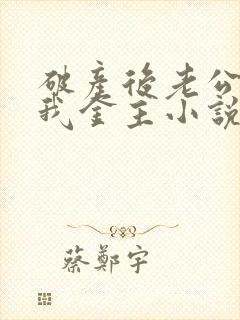 破產後老公
我金主小說
蔡鄭宇